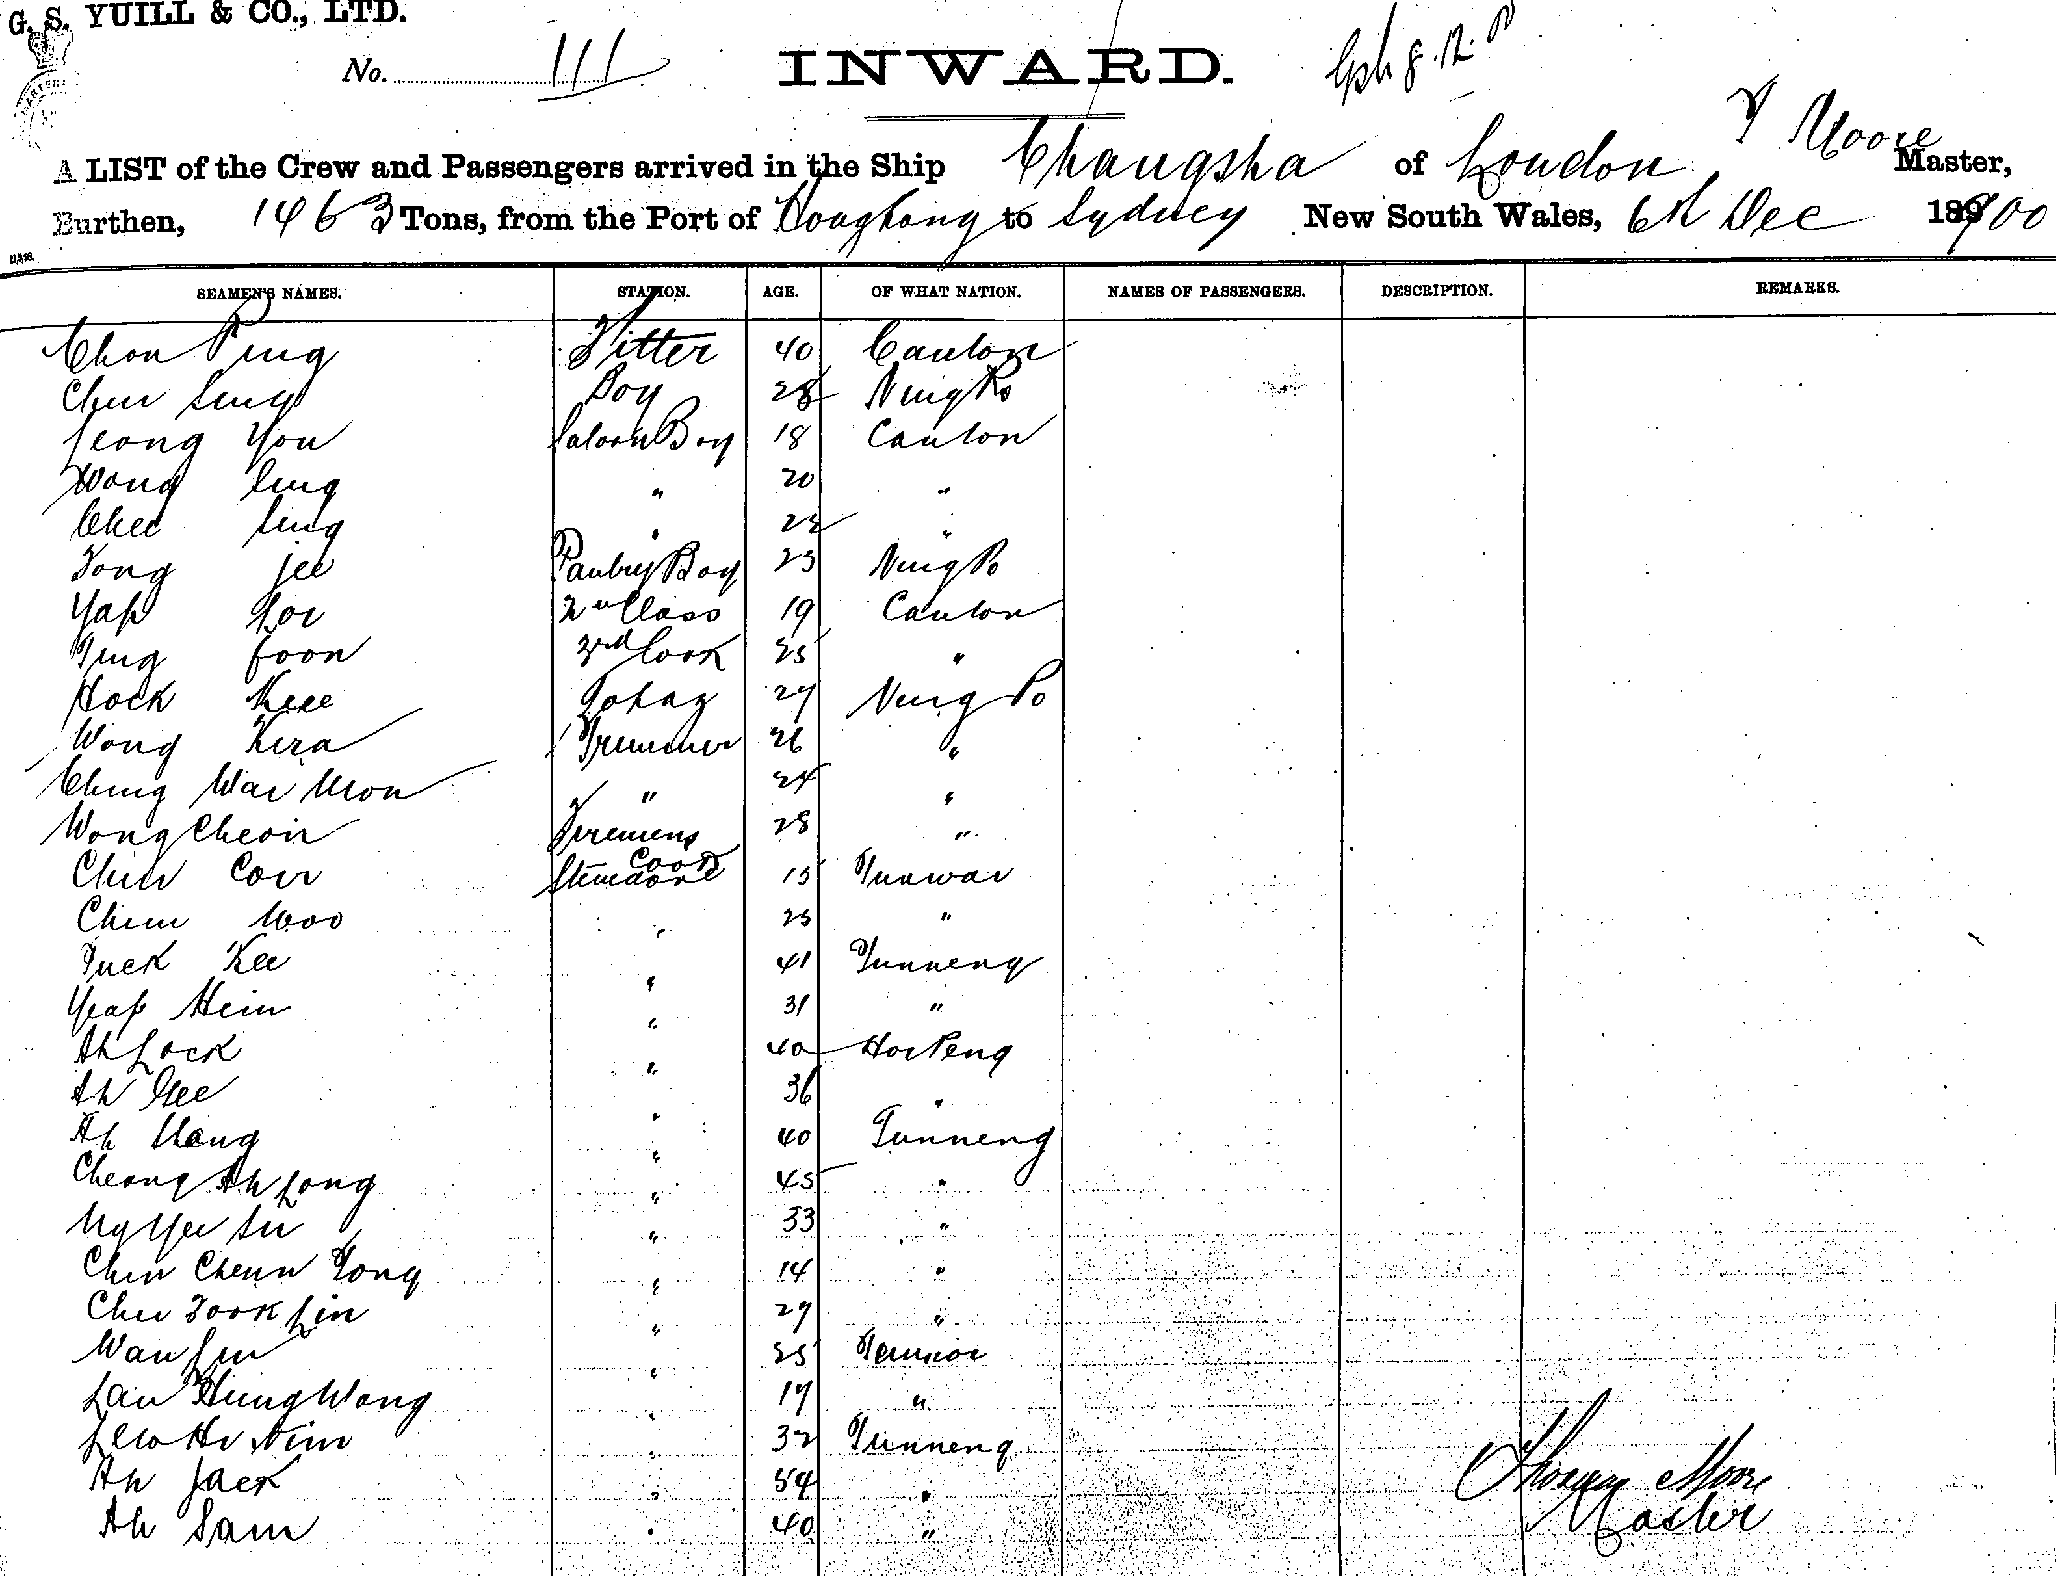 G. S. YUILL & CO., LTD.
No. 111
INWARD.
T Moore
A LIST of the Crew and Passengers arrived in the Ship Changsha of London Master,
Burthen, 1463 Tons, from the Port of Hongkong to Sydney New South Wales, 6th Dec 1900
SEAMEN'S NAMES. STATION. AGE. OF WHAT NATION. NAMES OF PASSENGERS. DESCRIPTION. REMARKS.
Chon Ping Fitter 40 Canton
Chin Sing Boy 28 Ning Po
Leong You Saloon Boy 18 Canton
Wong Sing " 20 "
Chee Sing " 22 "
Fong Jee Pantry Boy 23 Ning Po
Yap Loi 2nd Class 19 Canton
Ting Foon 3rd Cook 25 "
Hock Kee Topaz 27 Ning Po
Wong Kira Trimmer 26 "
Ching Wai Mon " 24 "
Wong Cheoir Firemens Cook 28 "
Chin Coir Stewaore 15 Tunwai
Chim Woo " 23 "
Tuck Kee " 41 Tunneng
Yeap Hein " 31 "
Ah Lock " 40 Hoi Peng
Ah Gee " 36 "
Ah Hang " 40 Tunneng
Cheong Ah Long " 45 "
Ng Yee Su " 33 "
Chin Cheun Tong " 14 "
Chu Fook Lin " 29 "
Wan Lin " 25
Lau Hung Wong " 17 "
Lew Hi Nim " 32 Tunneng
Ah Jack " 54 "
Ah Sam " 40 "
Thomas Moore
Master